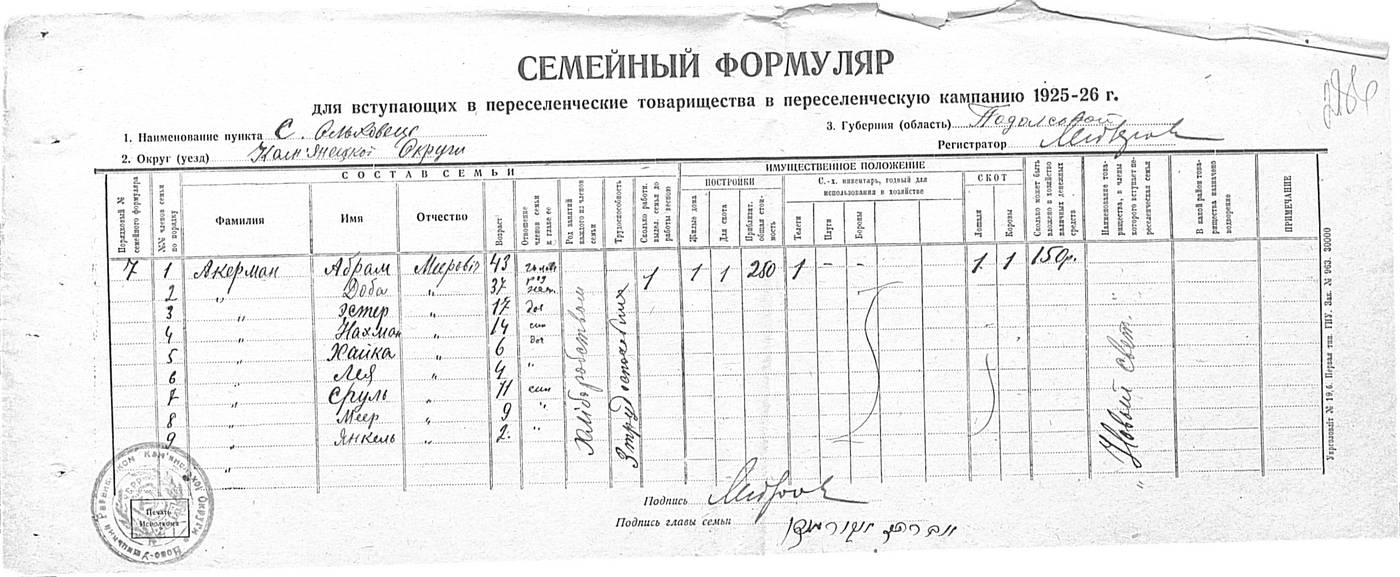 286
СЕМЕЙНЫЙ ФОРМУЛЯР
для вступающих в переселенческие товарищества в переселенческую кампанию 1925-26 г.
1. Наименование пункта С. Ольховець
3. Губерния (область)
2. Округ (уезд) Кам'янецкої Округи
Регистратор
СОСТАВ СЕМЬИ
ИМУЩЕСТВЕННОЕ ПОЛОЖЕНИЕ
ПОСТРОЙКИ
С.-х. инвентарь, годный для использования в хозяйстве
СКОТ
Порядковый № семейного формуляра
№№ членов семьи по порядку
Фамилия
Имя
Отчество
Возраст
Отношение членов семьи к главе ее
Род занятий каждого из членов семьи
Трудоспособность
Сколько работн. выдел. семья до работы весною
Жилые дома
Для скота
Приблизит. общая стоимость
Телеги
Плуги
Бороны
Лошади
Коровы
Сколько может быть вложено в хозяйство наличных денежных средств
Наименование товарищества, в члены которого вступает переселенческая семья
В какой район товарищества назначено водворение
ПРИМЕЧАНИЕ
7 1 Акерман Абрам Меерович 43 1 1 1 280 1 - - 1 1 150р.
2 " Доба " 37 жен.
3 " Эстер " 17 доч
4 " Нахман " 14 син
5 " Хайка " 6 доч
6 " Лея " 4 "
7 " Сруль " 11 син
8 " Меер " 9 "
9 " Янкель " 2. "
"
Хліборобством
"Новый свет.
Печать Исполкома
Подпись
Подпись главы семьи
Укрголовліт № 19,6. Первая тип. ГПУ. Зак. № 963. 30000